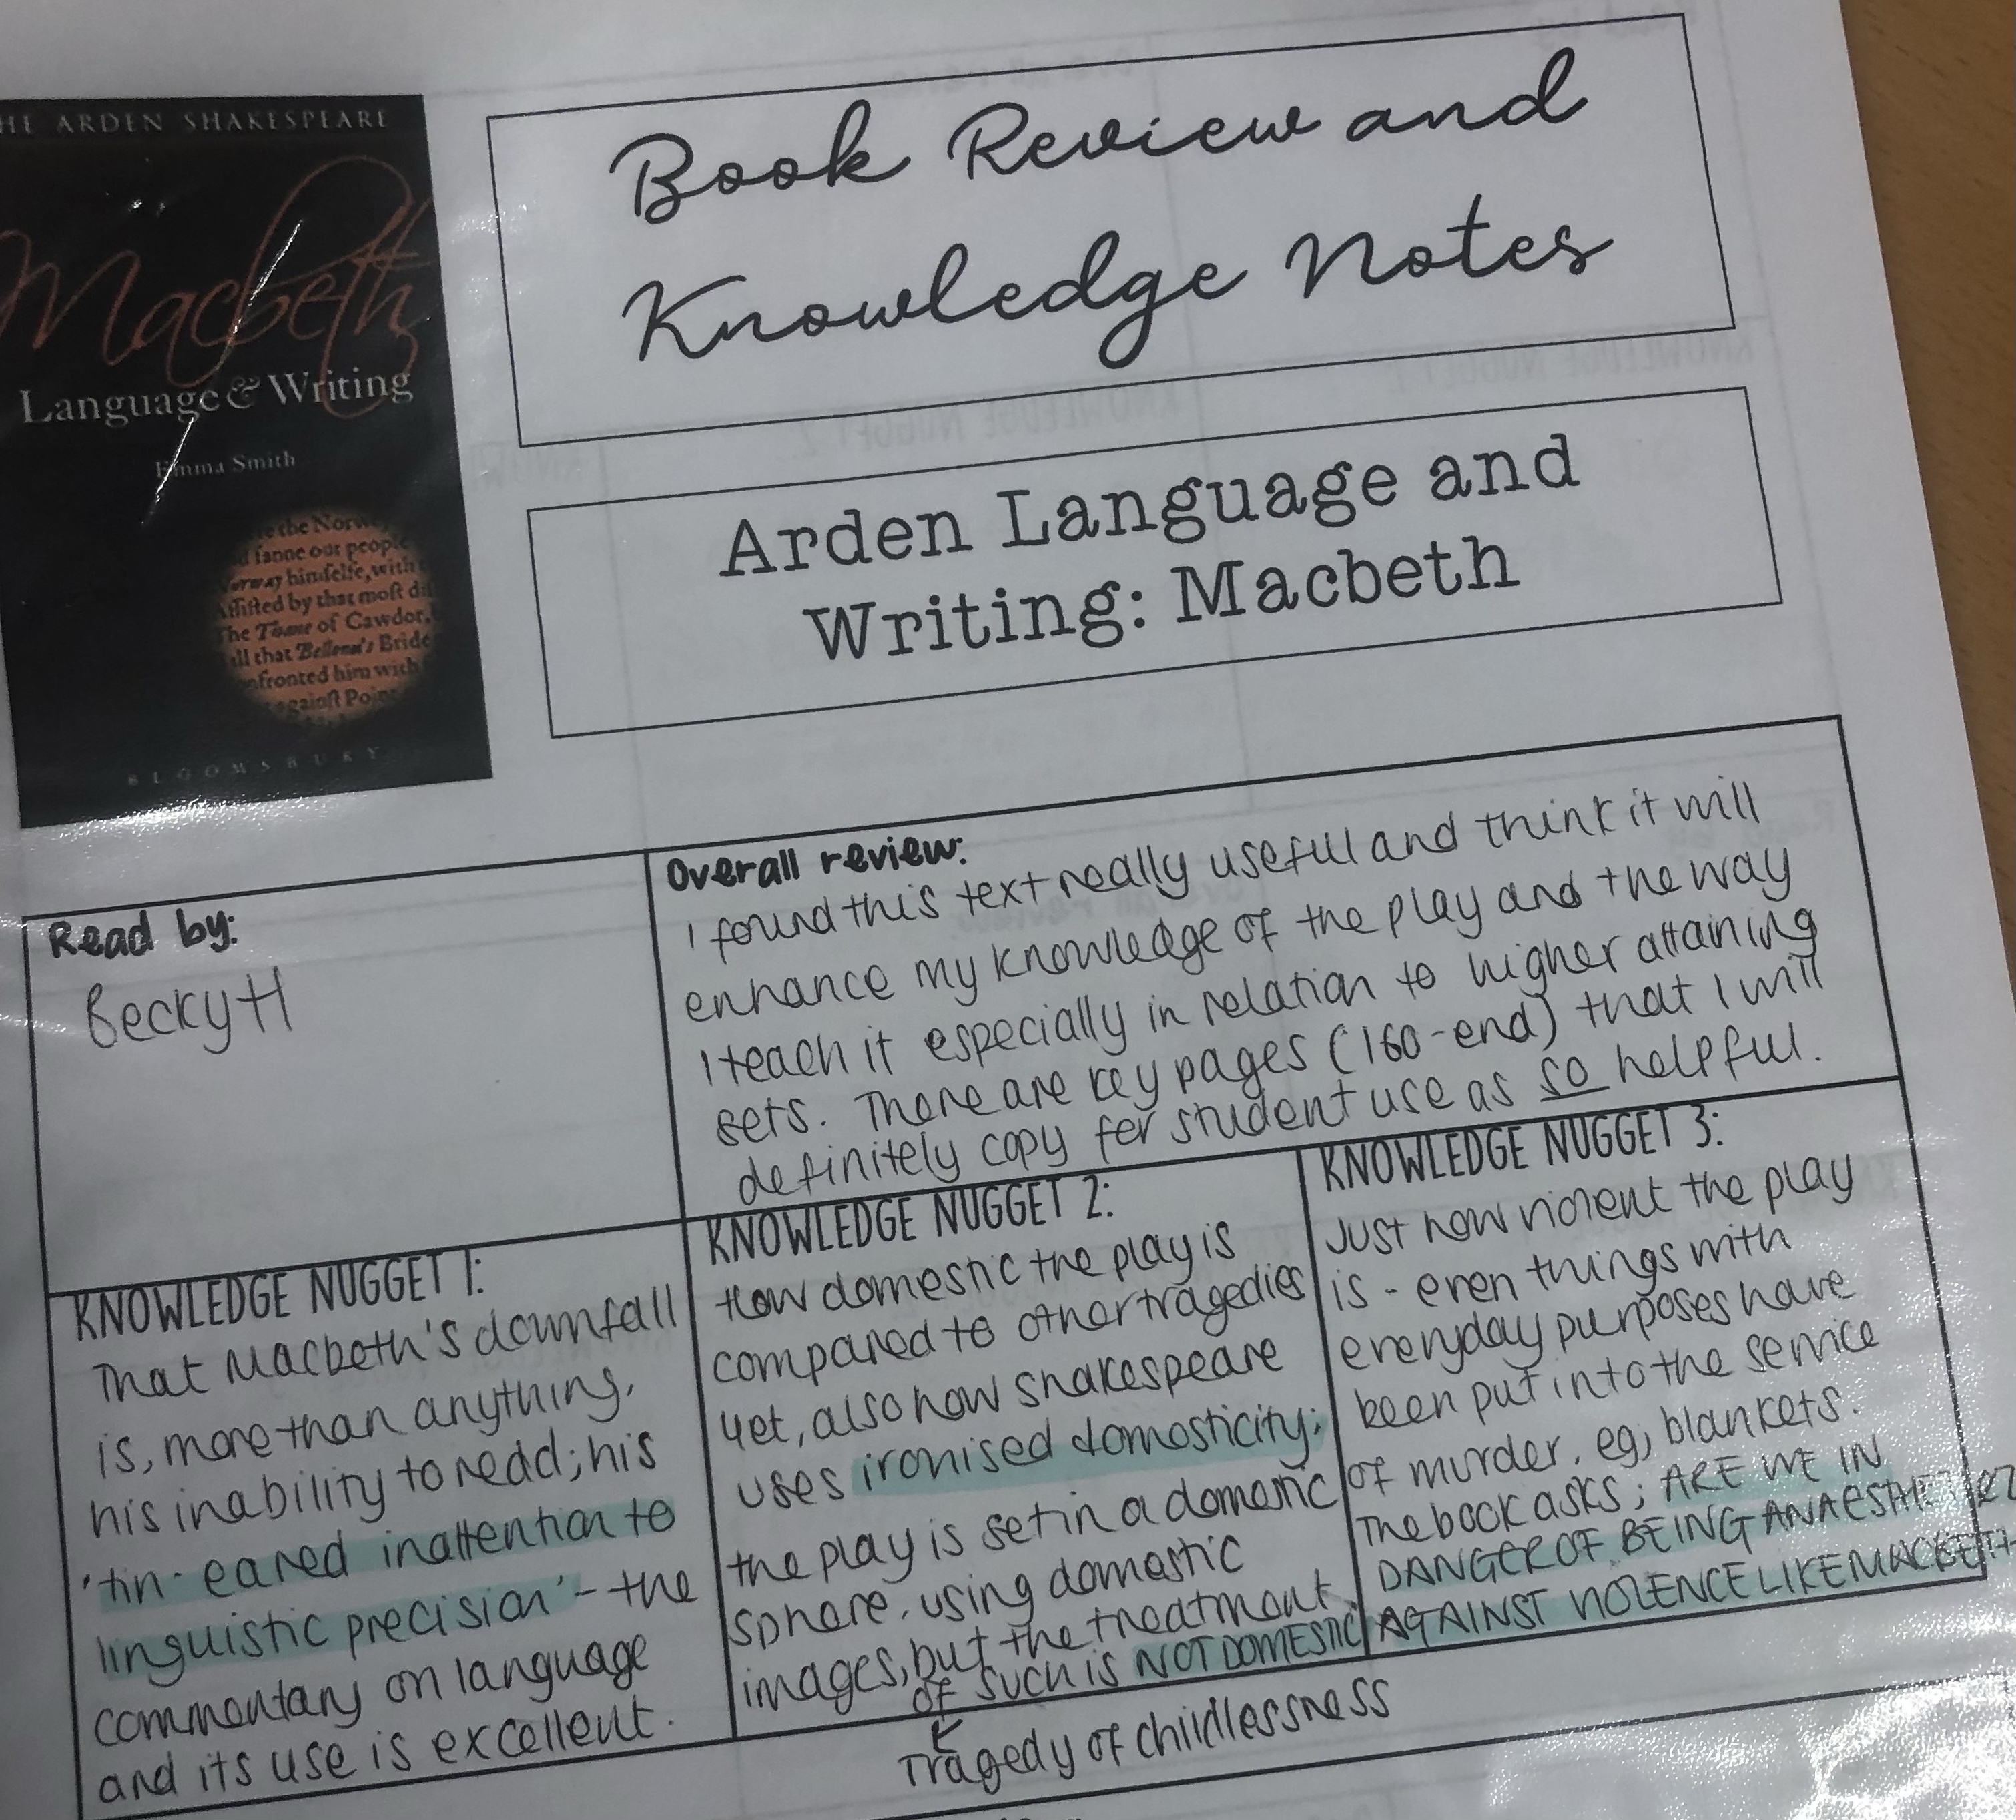 HE ARDEN SHAKESPEARE
Macbeth
Language & Writing
Emma Smith
e the Norw
d fanne out peopl
orway himselfe, with
Assisted by that most di
The Thane of Cawdor,
ill that Bellona's Bride
nfronted him with
against Point
BLOOMSBURY
Book Review and
Knowledge Notes
Arden Language and
Writing: Macbeth
Read by:
Becky H
Overall review:
I found this text really useful and think it will
enhance my knowledge of the play and the way
I teach it especially in relation to higher attaining
sets. There are key pages (160-end) that I will
definitely copy for student use as so helpful.
KNOWLEDGE NUGGET 1:
That Macbeth's downfall
is, more than anything,
his inability to read; his
'tin-eared inattention to
linguistic precision' - the
commentary on language
and its use is excellent.
KNOWLEDGE NUGGET 2:
How domestic the play is
compared to other tragedies
yet, also how Shakespeare
uses ironised domosticity;
the play is set in a domestic
sphere, using domestic
images, but the treatment
of such is NOT DOMESTIC
Tragedy of childlessness
KNOWLEDGE NUGGET 3:
Just how violent the play
is - even things with
everyday purposes have
been put into the service
of murder, eg, blankets.
The book asks; ARE WE IN
DANGER OF BEING ANAESTHETISED
AGAINST VIOLENCE LIKE MACBETH